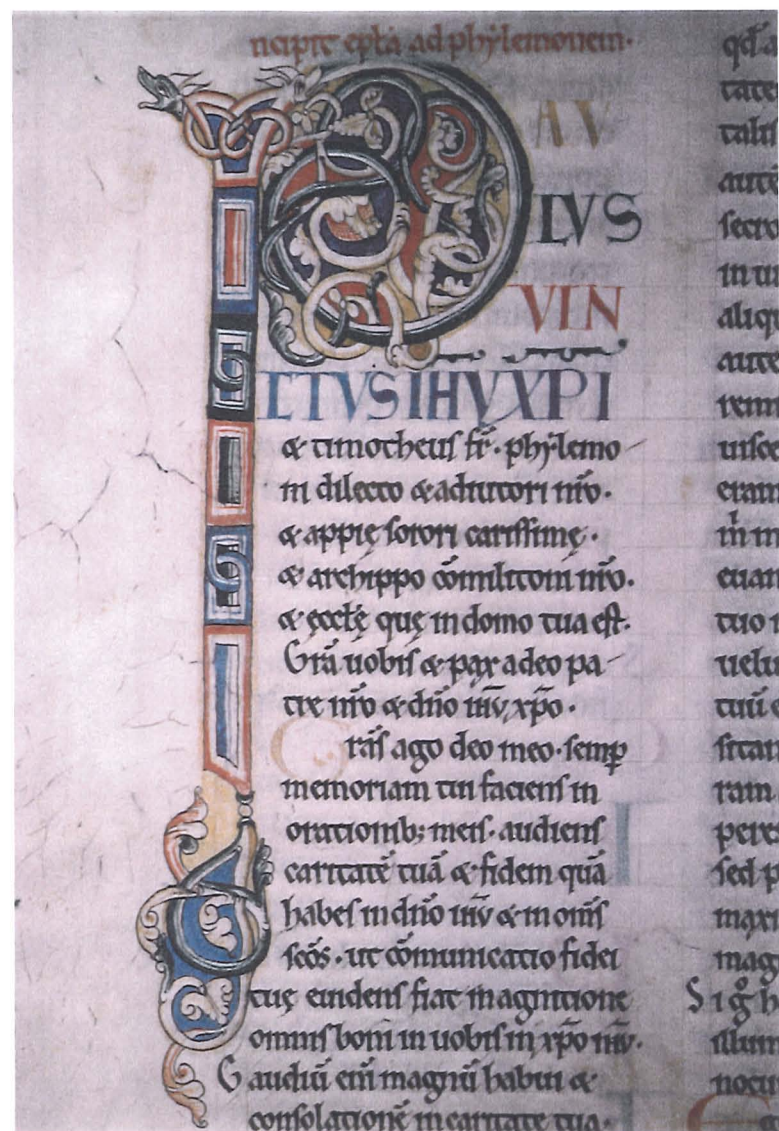 ncipit ep̄la ad phylemonem·
PAV
LVS
VIN
CTVS IHV XPI
& timotheus fr̄· phylemo
ni dilecto & adiutori nr̄o·
& appię sorori carissimę·
& archippo cōmilitoni nr̄o·
& ęcclę̄ quę in domo tua est·
Grā uobis & pax a deo pa
tre nr̄o & dn̄o ih̄u xp̄o·
Grās ago deo meo· semp̄
memoriam tui faciens in
orationib; meis· audiens
caritatē tuā & fidem quā
habes in dn̄o ih̄u & in om̄s
sc̄os· ut cōmunicatio fidei
tuę euidens fiat in agnitione
omnis boni in uobis in xp̄o ih̄u·
Gaudiū eni̅ magnū habui &
consolationē in caritate tua·
qd̄ a
tate
tali
aute
secro
in ui
aliq
aute
renn
uisce
eram
m̄ in
euan
tuo i
uelu
tuū
sitan
ram
pere
sed p
maxi
mag
Sig h
illum
nocu